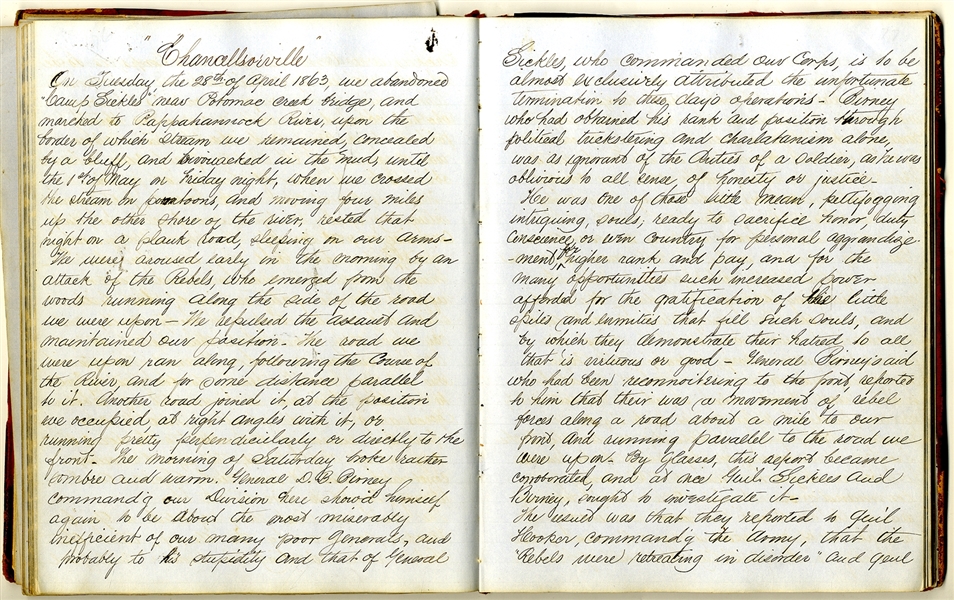 "Chancellsorville"
On Tuesday, the 28th of April 1863, we abandoned
"Camp Sickles" near Potomac Creek bridge, and
marched to Rappahannock River, upon the
border of which Stream we remained, concealed
by a bluff, and bivouacked in the mud, until
the 1st of May on Friday night, when we crossed
the stream on pontoons, and moving four miles
up the other shore of the river, rested that
night on a plank road, sleeping on our arms-
We were aroused early in the morning by an
attack of the Rebels, who emerged from the
woods running along the side of the road
we were upon- We repulsed the assault and
maintained our position- The road we
were upon ran along, following the Course of
the River, and for some distance parallel
to it. Another road joined it at the position
we occupied, at right angles with it, or
running pretty perpendicularly or directly to the
front- The morning of Saturday broke rather
sombre and warm. General D. B. Birney
command'g our Division here show'd himself
again to be about the most miserably
inefficient of our many poor Generals, and
probably to his stupidity and that of General
Sickles, who commanded our Corps, is to be
almost exclusively attributed the unfortunate
termination to these days operations- Birney
who had obtained his rank and position through
political trickstering and charlatanism alone,
was as ignorant of the duties of a soldier, as he was
oblivious to all sense of honesty or justice-
He was one of those little mean, pettifogging
intriguing, souls, ready to sacrifice honor, duty,
Conscience, or even country for personal aggrandize-
-ment, for higher rank and pay, and for the
many opportunities such increased power
afforded for the gratification of the little
spites and enmities that fill such souls, and
by which they demonstrate their hatred to all
that is virtuous or good- General Birney's aid
who had been reconnoitering to the front, reported
to him that their was a movement of rebel
forces along a road about a mile to our
front, and running parallel to the road we
were upon- By glasses, this report became
corroborated, and at once Genl. Sickles and
Birney, sought to investigate it-
The issued was that they reported to Genl
Hooker, command'g the Army, that the
"Rebels were retreating in disorder" and Genl